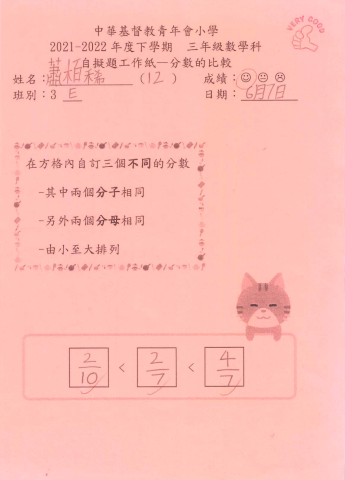 中華基督教青年會小學
VERY GOOD
2021-2022 年度下學期 三年級數學科
自擬題工作紙—分數的比較
姓名：蕭栢稀 (12) 成績：
班別：3 E 日期：6月7日
在方格內自訂三個不同的分數
-其中兩個分子相同
-另外兩個分母相同
-由小至大排列
2/10 < 2/7 < 4/7